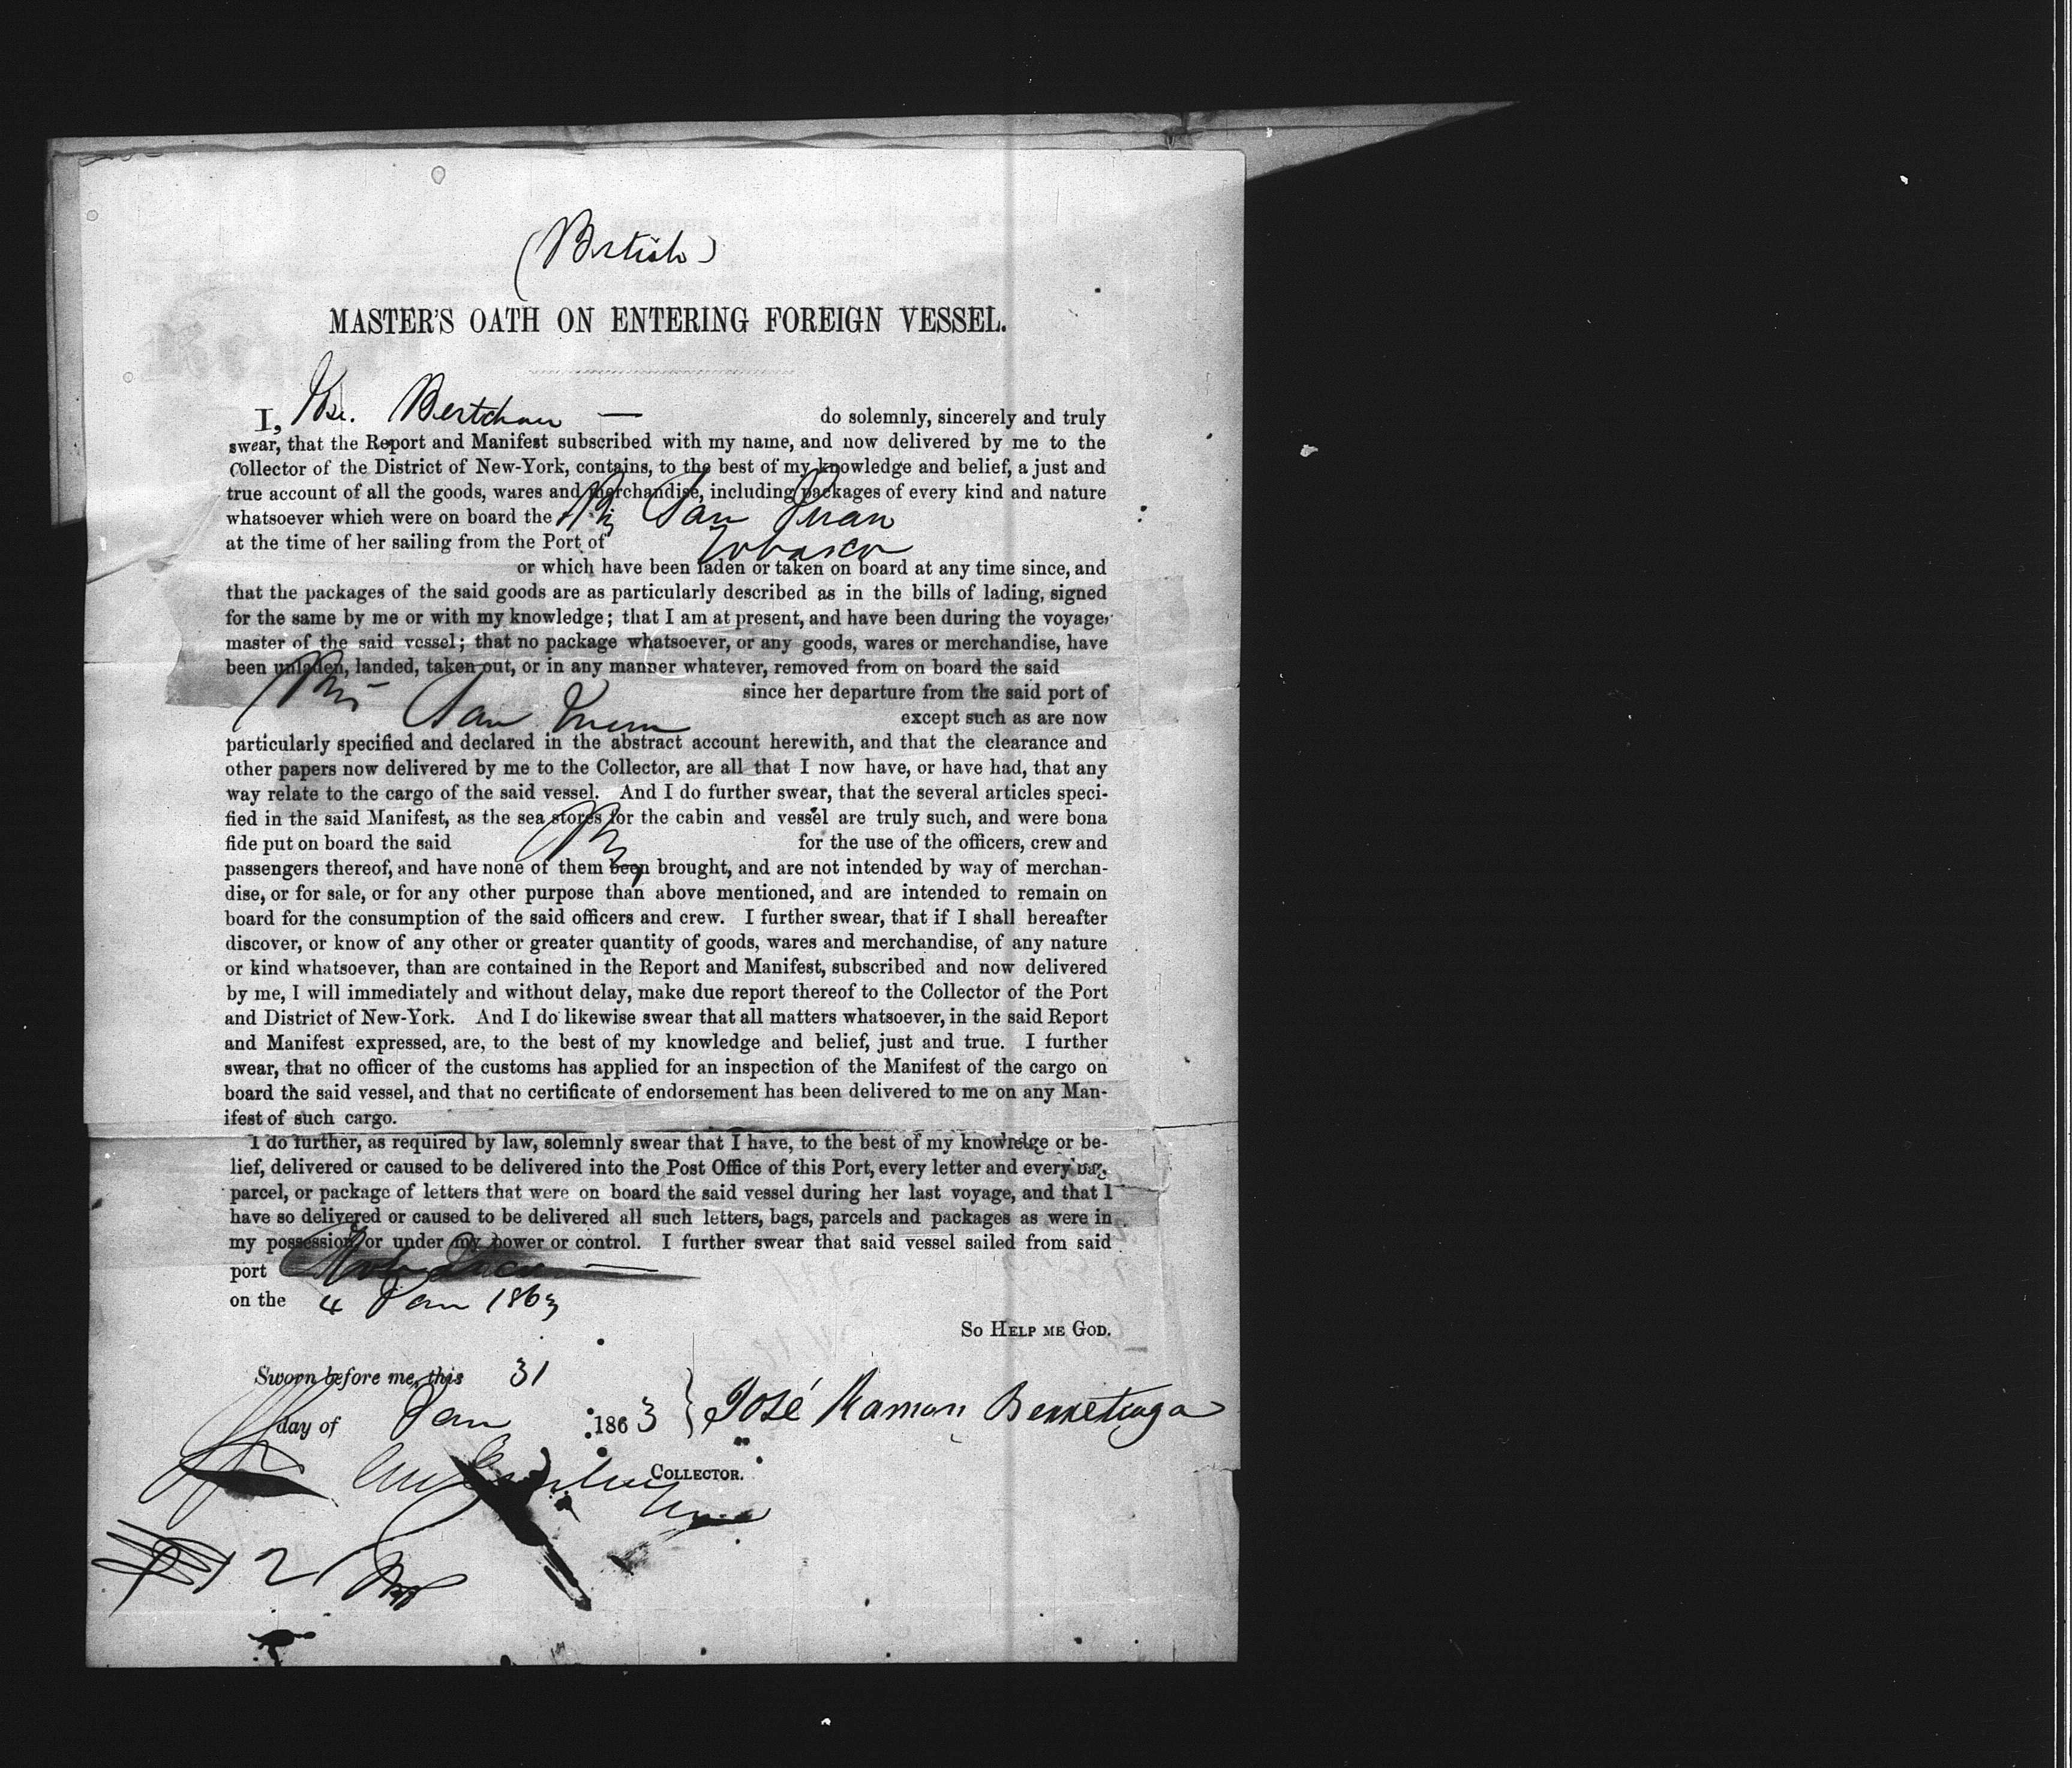 (British)
MASTER'S OATH ON ENTERING FOREIGN VESSEL.
I, Bertchau — do solemnly, sincerely and truly
swear, that the Report and Manifest subscribed with my name, and now delivered by me to the
Collector of the District of New-York, contains, to the best of my knowledge and belief, a just and
true account of all the goods, wares and merchandise, including packages of every kind and nature
whatsoever which were on board the Brig San Juan
at the time of her sailing from the Port of Tobasco
or which have been laden or taken on board at any time since, and
that the packages of the said goods are as particularly described as in the bills of lading, signed
for the same by me or with my knowledge; that I am at present, and have been during the voyage,
master of the said vessel; that no package whatsoever, or any goods, wares or merchandise, have
been unladen, landed, taken out, or in any manner whatever, removed from on board the said
Brig San Juan since her departure from the said port of
except such as are now
particularly specified and declared in the abstract account herewith, and that the clearance and
other papers now delivered by me to the Collector, are all that I now have, or have had, that any
way relate to the cargo of the said vessel. And I do further swear, that the several articles speci-
fied in the said Manifest, as the sea stores for the cabin and vessel are truly such, and were bona
fide put on board the said Brig for the use of the officers, crew and
passengers thereof, and have none of them been brought, and are not intended by way of merchan-
dise, or for sale, or for any other purpose than above mentioned, and are intended to remain on
board for the consumption of the said officers and crew. I further swear, that if I shall hereafter
discover, or know of any other or greater quantity of goods, wares and merchandise, of any nature
or kind whatsoever, than are contained in the Report and Manifest, subscribed and now delivered
by me, I will immediately and without delay, make due report thereof to the Collector of the Port
and District of New-York. And I do likewise swear that all matters whatsoever, in the said Report
and Manifest expressed, are, to the best of my knowledge and belief, just and true. I further
swear, that no officer of the customs has applied for an inspection of the Manifest of the cargo on
board the said vessel, and that no certificate of endorsement has been delivered to me on any Man-
ifest of such cargo.
I do further, as required by law, solemnly swear that I have, to the best of my knowledge or be-
lief, delivered or caused to be delivered into the Post Office of this Port, every letter and every bag,
parcel, or package of letters that were on board the said vessel during her last voyage, and that I
have so delivered or caused to be delivered all such letters, bags, parcels and packages as were in
my possession or under my power or control. I further swear that said vessel sailed from said
port
on the 4 Jan 1863
SO HELP ME GOD.
Sworn before me, this 31
day of Jan 1863 } José Ramon
COLLECTOR.